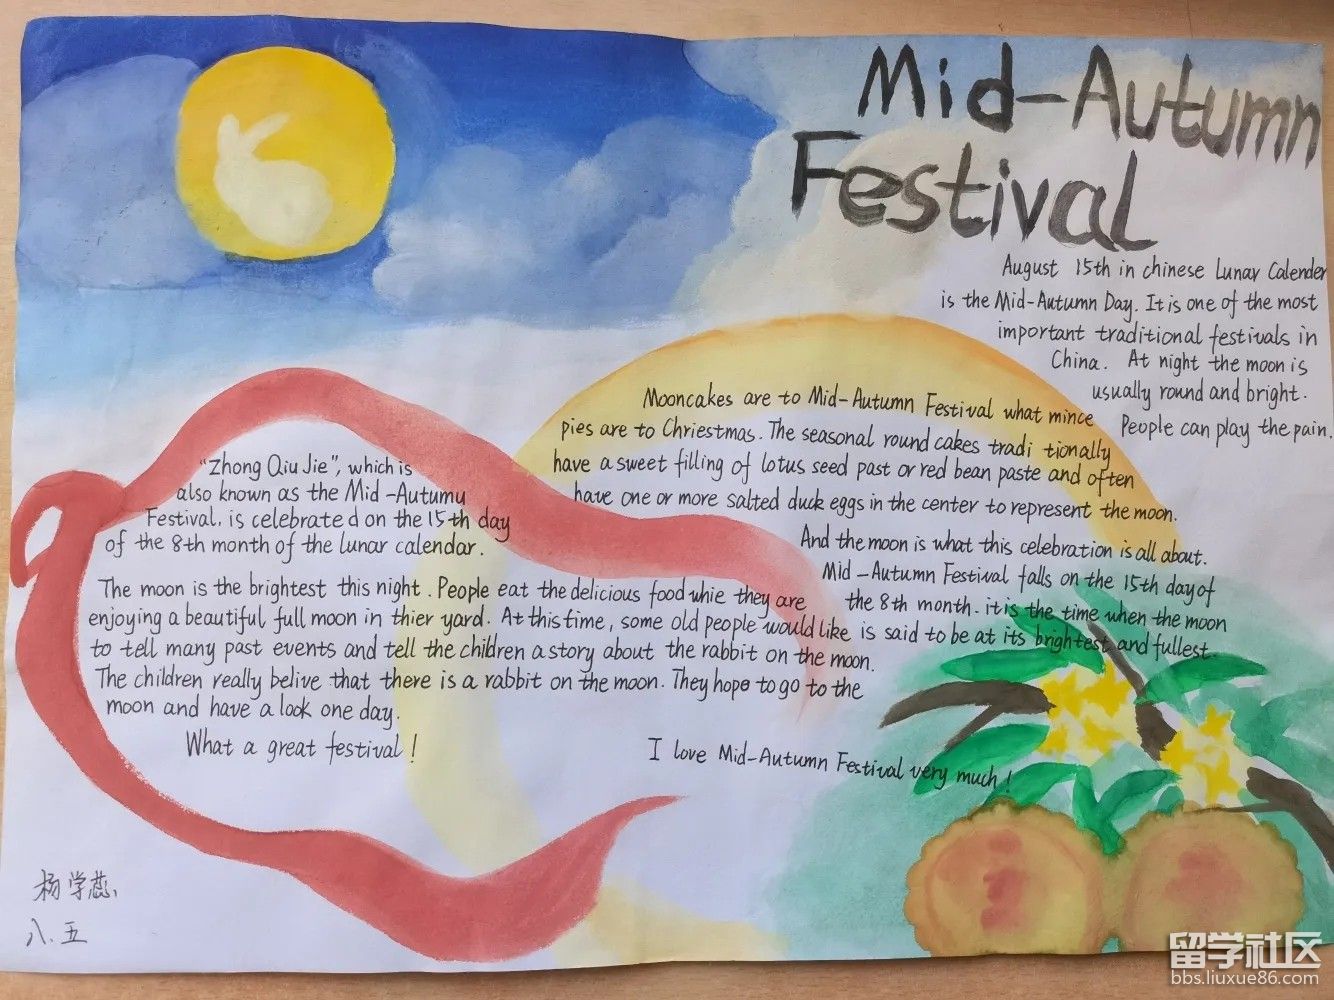 Mid-Autumn
Festival
August 15th in chinese Lunar Calender
is the Mid-Autumn Day. It is one of the most
important traditional festivals in
China. At night the moon is
usually round and bright.
People can play the pain.
Mooncakes are to Mid-Autumn Festival what mince
pies are to Chriestmas. The seasonal round cakes tradi tionally
have a sweet filling of lotus seed past or red bean paste and often
have one or more salted duck eggs in the center to represent the moon.
And the moon is what this celebration is all about.
Mid-Autumn Festival falls on the 15th day of
the 8th month. it is the time when the moon
is said to be at its brightest and fullest.
"Zhong Qiu Jie", which is
also known as the Mid-Autumy
Festival, is celebrated on the 15th day
of the 8th month of the lunar calendar.
The moon is the brightest this night. People eat the delicious food whie they are
enjoying a beautiful full moon in thier yard. At this time, some old people would like
to tell many past events and tell the children a story about the rabbit on the moon.
The children really belive that there is a rabbit on the moon. They hope to go to the
moon and have a look one day.
What a great festival!
I love Mid-Autumn Festival very much!
杨学蕊
八.五
留学社区
bbs.liuxue86.com